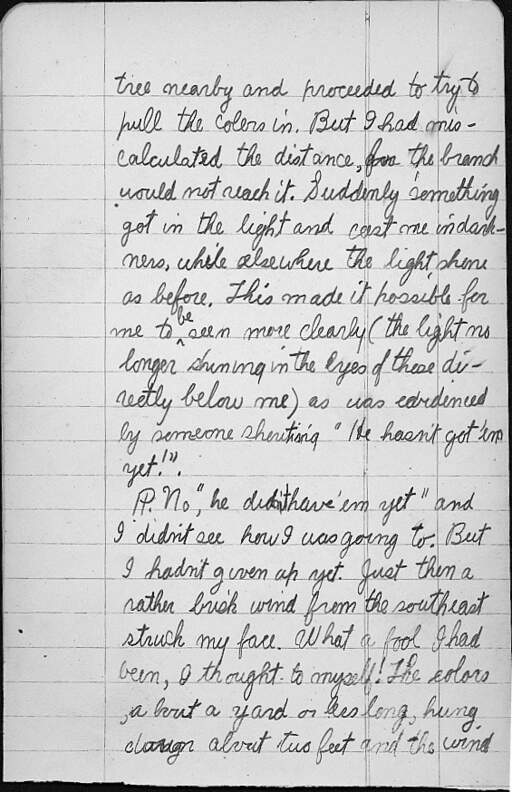 tree nearby and proceeded to try to
pull the colors in. But I had mis-
calculated the distance, for the branch
would not reach it. Suddenly something
got in the light and cast me in dark-
ness, while elsewhere the light shone
as before. This made it possible for
me to be seen more clearly (the light no
longer shining in the eyes of those di-
rectly below me) as was evidenced
by someone shouting "He hasn't got 'em
yet!".
P. No", he didn't have 'em yet" and
I didn't see how I was going to. But
I hadn't given up yet. Just then a
rather brisk wind from the southeast
struck my face. What a fool I had
been, I thought to myself! The colors
, about a yard or so long, hung
down about two feet and the wind